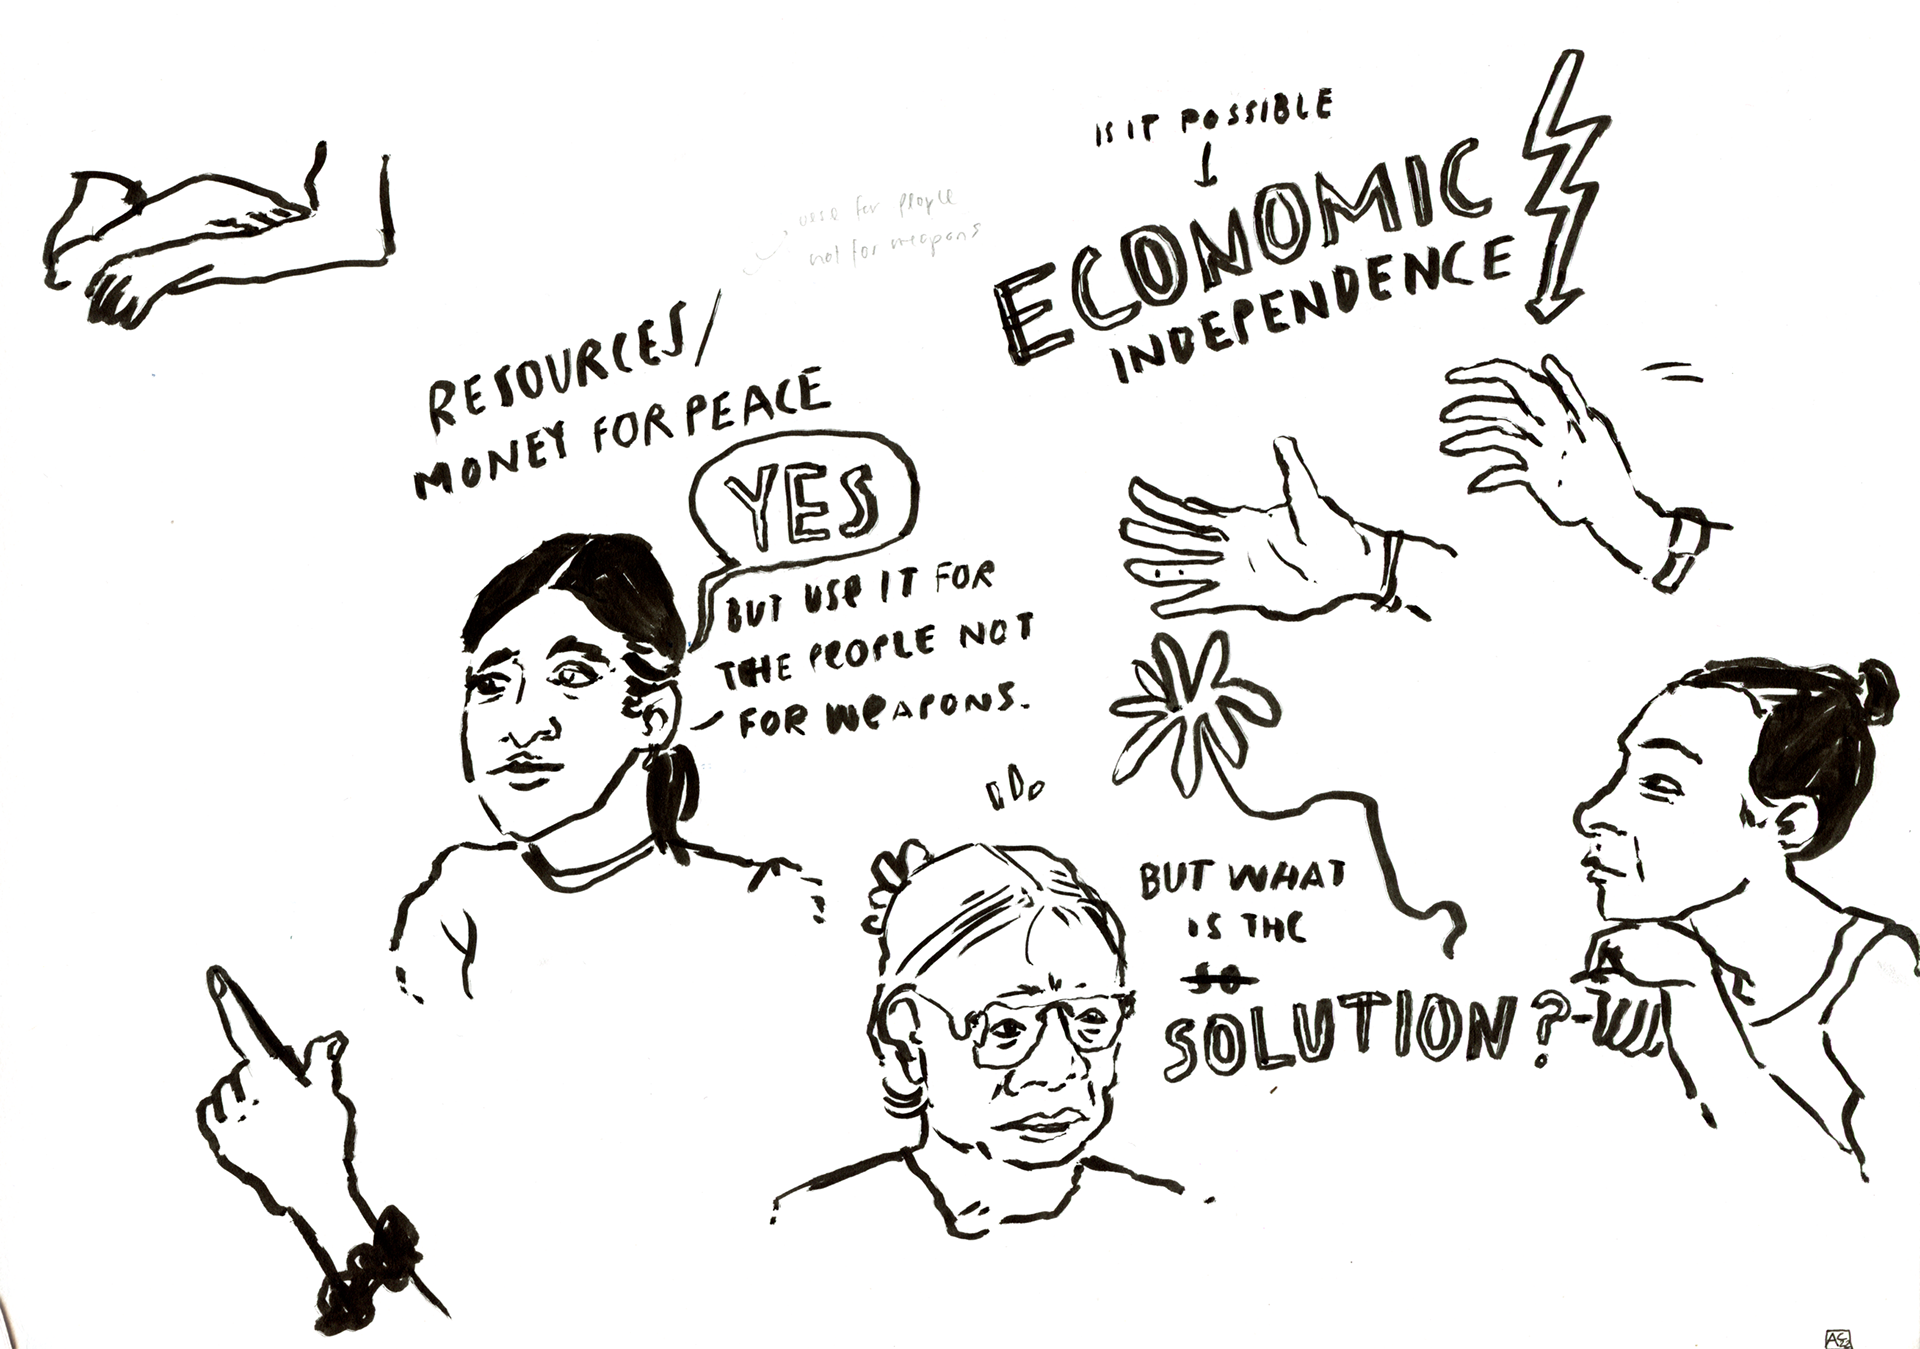 IS IT POSSIBLE
ECONOMIC
INDEPENDENCE
use for people
not for weapons
RESOURCES/
MONEY FOR PEACE
YES
BUT USE IT FOR
THE PEOPLE NOT
FOR WEAPONS.
BUT WHAT
IS THE
SO
SOLUTION?